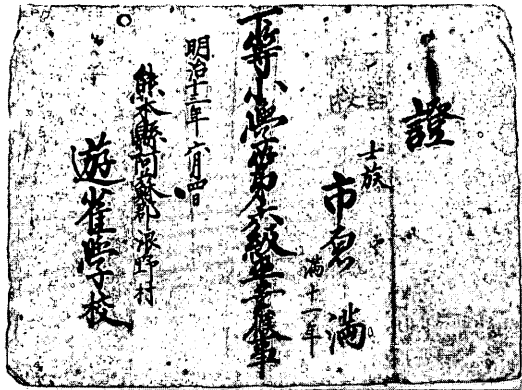 證
士族
市原 満
満十一年
下等小學第六級卒業候事
明治十二年六月四日
熊本縣阿蘇郡 野村
遊雀学校